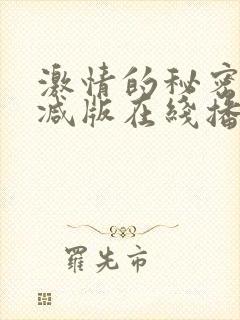 激情的秘密
减版在线播
羅先市